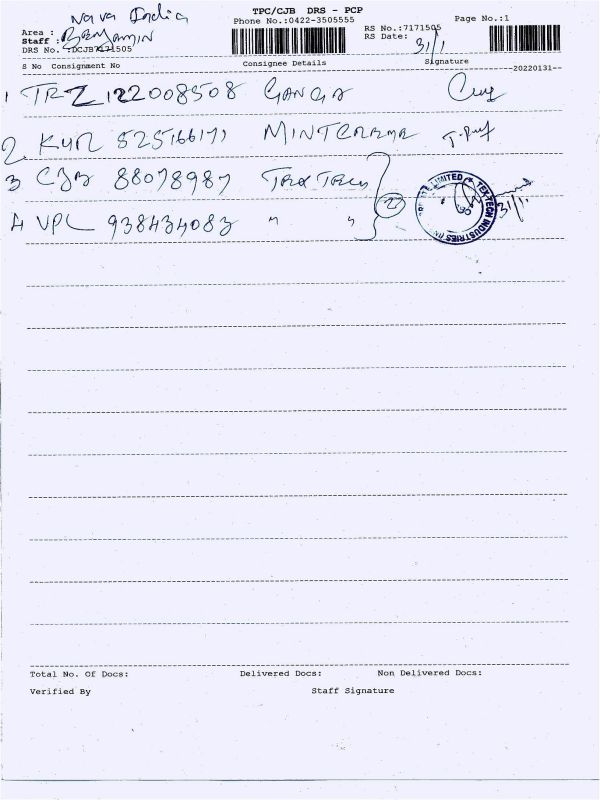 TPC/CJB DRS - PCP
Phone No.:0422-3505555
Page No.:1
Area : Nava India
Staff : BENJAMIN
DRS No. :DCJB7171505
RS No.:7171505
RS Date: 31/1
S No Consignment No Consignee Details Signature
--20220131--
1 TRZ 122008508 GANGA
2 KUR 525166171
3 CJB 88078987
4 VPL 938434083 " "
TEX-TECH INDUSTRIES LIMITED
31/1
Total No. Of Docs: Delivered Docs: Non Delivered Docs:
Verified By Staff Signature